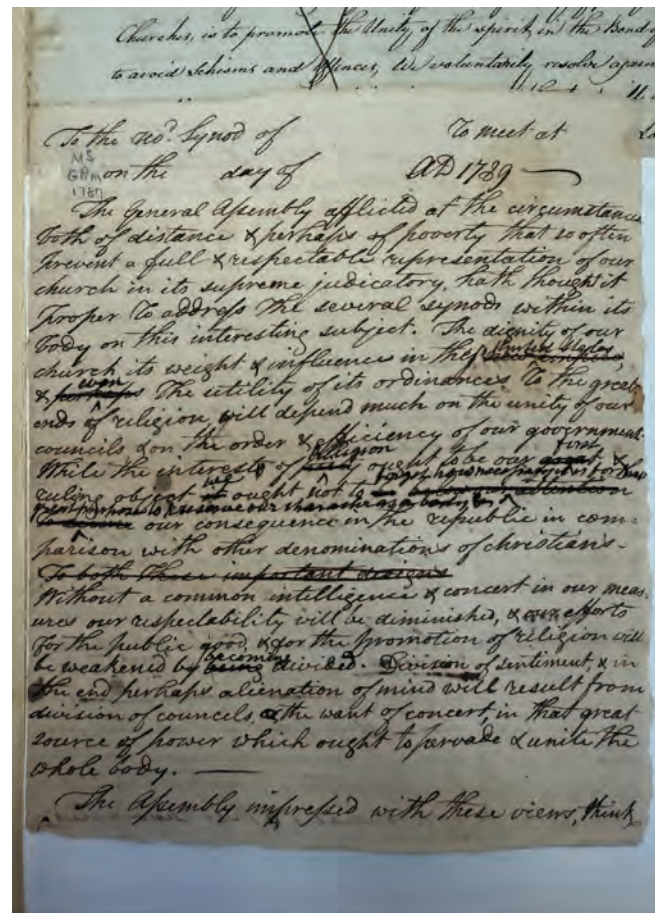 Churches, is to promote the Unity of the Spirit, in the Bond of
to avoid Schisms and offences, We voluntarily resolve again
To the revd. Synod of To meet at
MS
GAm
1789
on the day of AD 1789
The General Assembly afflicted at the circumstances
both of distance & perhaps of poverty that so often
prevent a full & respectable representation of our
church in its supreme judicatory, hath thought it
proper to address the several synods within its
body on this interesting subject. The dignity of our
church its weight & influence in the United States,
& even perhaps the utility of its ordinances to the great
ends of religion, will depend much on the unity of our
councils & on the order & efficiency of our government.
While the interests of religion ought to be our first &
ruling object we ought not to forget how necessary it is for
to preserve our character as a body &
our consequence in the republic in com-
parison with other denominations of christians.
To both those important designs
Without a common intelligence & concert in our meas-
ures our respectability will be diminished, & our efforts
for the public good, & for the promotion of religion will
be weakened by becoming being divided. Division of sentiment, & in
the end perhaps alienation of mind will result from
division of councils, & the want of concert, in that great
source of power which ought to pervade & unite the
whole body.
The Assembly impressed with these views, think